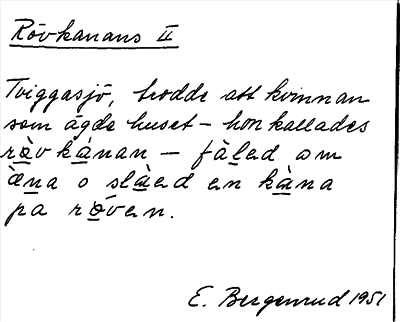 Rövkanans II
Tviggasjö, trodde att kvinnan
som ägde huset – hon kallades
rö̀v kánan – fàled om
æ̀na o slàed en kàna
pa röven.
E. Bergenrud 1951